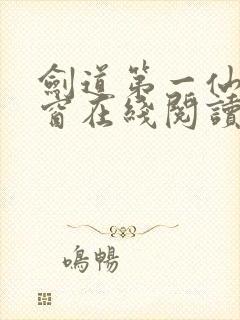 劍道第一仙
窗在綫閱讀
鳴暢